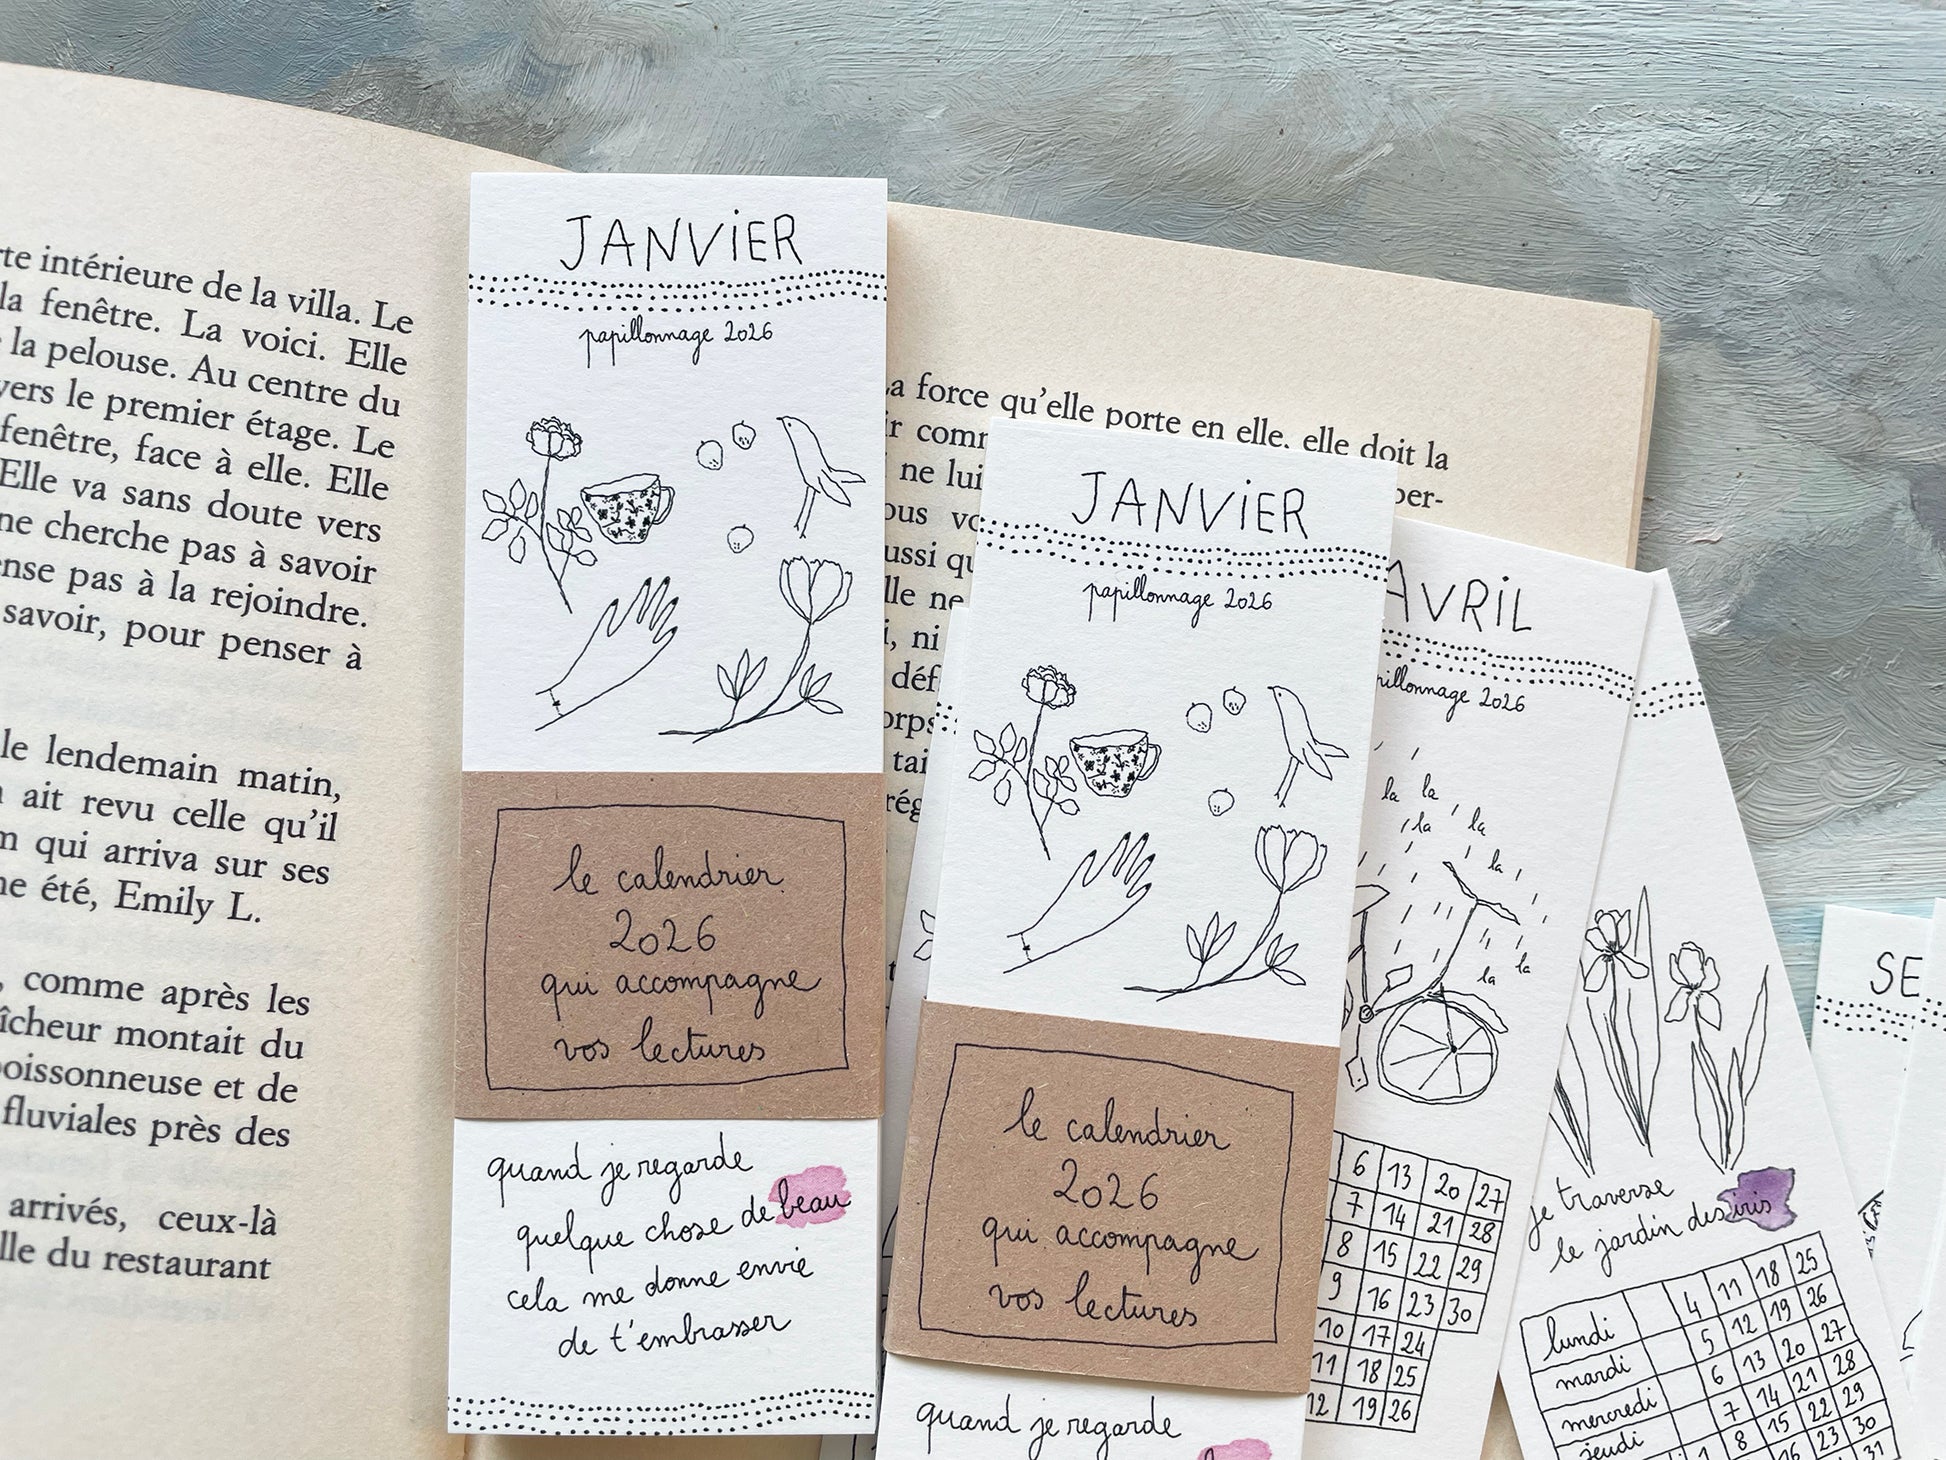 intérieure de la villa. Le
la fenêtre. La voici. Elle
la pelouse. Au centre du
vers le premier étage. Le
fenêtre, face à elle. Elle
Elle va sans doute vers
ne cherche pas à savoir
pas à la rejoindre.
savoir, pour penser à
le lendemain matin,
ait revu celle qu'il
qui arriva sur ses
été, Emily L.
, comme après les
montait du
poissonneuse et de
fluviales près des
arrivés, ceux-là
du restaurant
JANVIER
papillonnage 2026
le calendrier
2026
qui accompagne
vos lectures
quand je regarde
quelque chose de beau
cela me donne envie
de t'embrasser
La force qu'elle porte en elle, elle doit la
ne lui
JANVIER
papillonnage 2026
le calendrier
2026
qui accompagne
vos lectures
quand je regarde
AVRIL
papillonnage 2026
la la
la la
la
la la
6 13 20 27
7 14 21 28
8 15 22 29
9 16 23 30
10 17 24
11 18 25
12 19 26
je traverse
le jardin des iris
lundi 4 11 18 25
mardi 5 12 19 26
mercredi 6 13 20 27
jeudi 7 14 21 28
1 8 15 22 29
16 23 30
31
SE